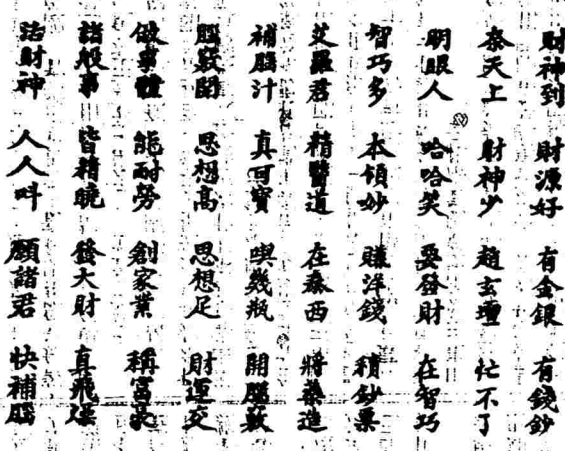 財神到 財源好 有金銀 有錢鈔
泰天上 財神少 趙玄壇 忙不了
明眼人 哈哈笑 要發財 在智巧
智巧多 本領妙 賺洋錢 積鈔票
艾羅君 精醫道 在泰西 將藥造
補腦汁 真可寶 喫幾瓶 開腦竅
腦竅開 思想高 思想足 財運交
做事體 能耐勞 創家業 稱富豪
諸般事 皆精曉 發大財 真飛躁
活財神 人人叫 願諸君 快補腦